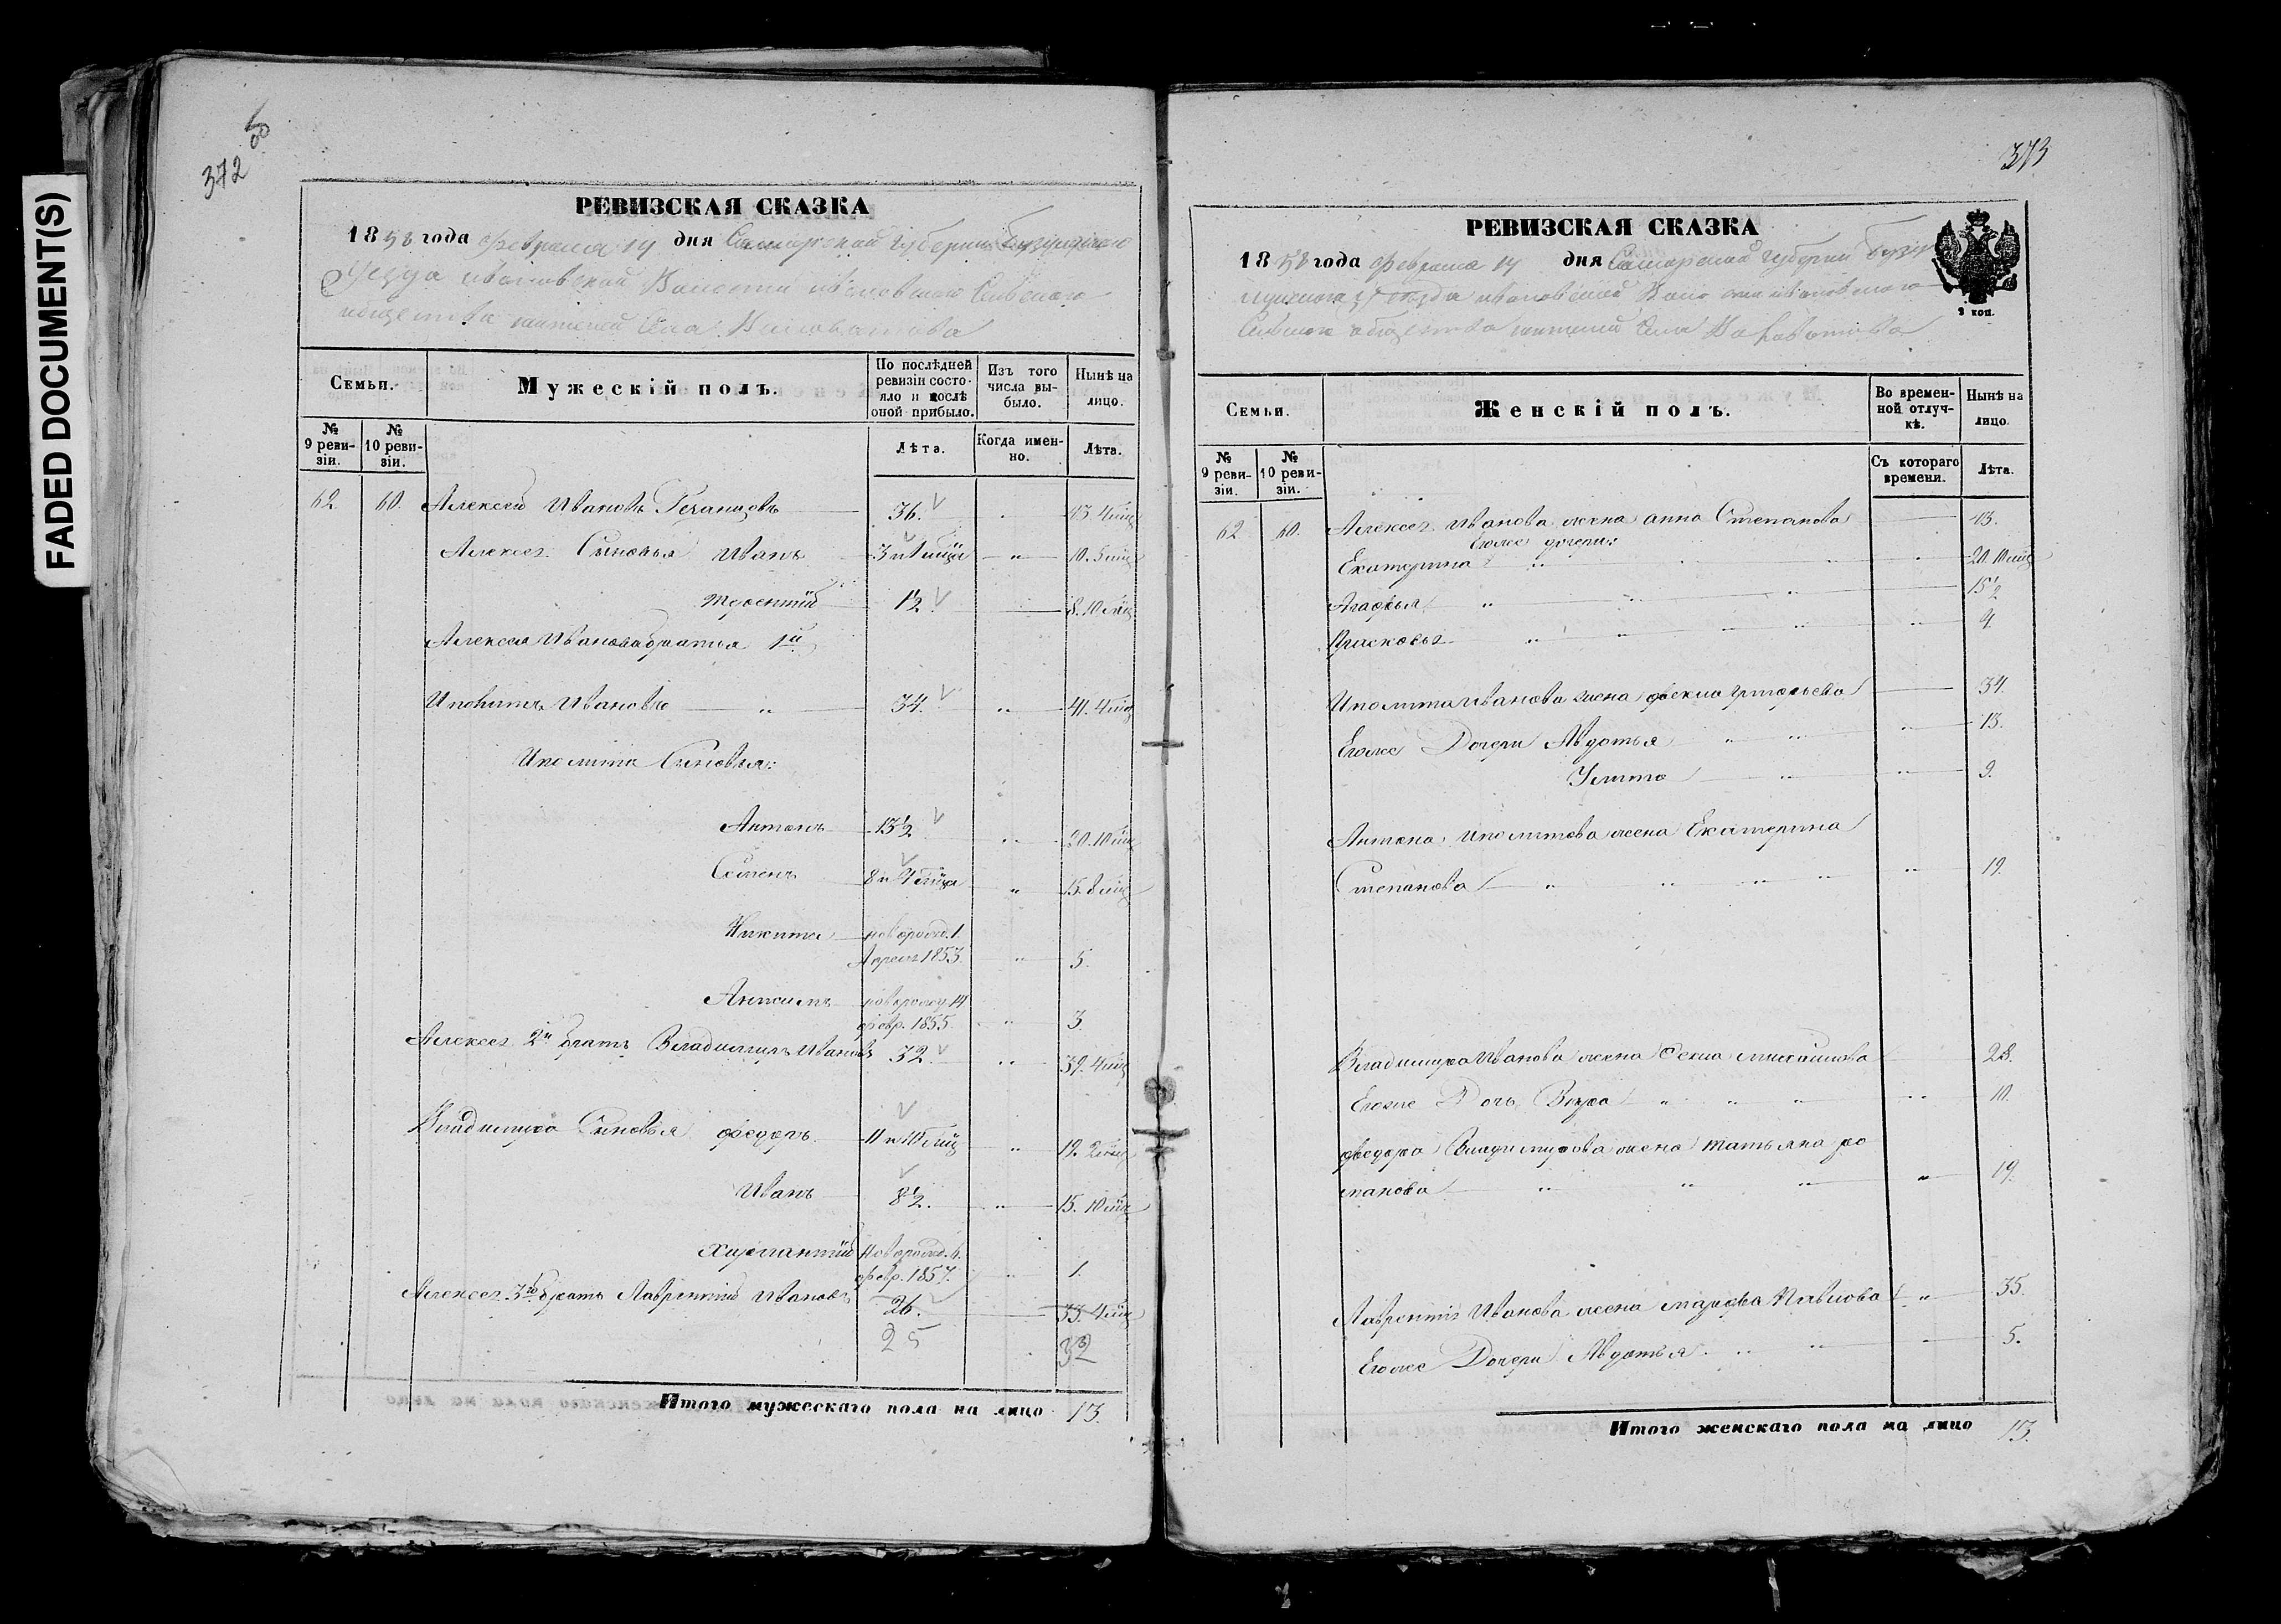 FADED DOCUMENT(S)
372
РЕВИЗСКАЯ СКАЗКА
1858 года Февраля 14 дня Самарской Губернии Бузулукскаго
Уезда Ивановской Волости Ивановскаго Сельскаго
общества жителей Села
Семьи.
Мужескій полъ.
По послѣдней ревизіи состояло и послѣ оной прибыло.
Изъ того числа выбыло.
Нынѣ на лицо.
№ 9 ревизіи.
№ 10 ревизіи.
Лѣта.
Когда именно.
Лѣта.
62. 60. Алексей Ивановъ 36. 43. 4 мѣц
Алексея Сыновья Иванъ 10. 5 мѣц
Терентій 1½ 8. 10 мѣц
Алексея Иванова братья 1й
Иполитъ Ивановъ 34. 41. 4 мѣц
Иполита Сыновья:
Антонъ 13½ 20. 10 мѣц
Семенъ 8 и 4 мѣца 15. 8 мѣц
Никита новорожд. 1
Апреля 1853. 5.
новорожд. 14
февр. 1855. 3.
Алексея 2й братъ Владимиръ Ивановъ 32. 39. 4 мѣц
Владимира Сыновья Федоръ 11 и 10 мѣц 19. 2 мѣц
Иванъ 8½. 15. 10 мѣц
новорожд. 4.
февр. 1857. 1.
Алексея 3й братъ Лаврентій Ивановъ 26. 33. 4 мѣц
25 32
Итого мужескаго пола на лицо 13.
373
РЕВИЗСКАЯ СКАЗКА
1858 года Февраля 14 дня Самарской Губернии Бузу
лукскаго Уезда Ивановской Волости Ивановскаго
Сельскаго общества жителей Села
2 коп.
Семьи.
Женскій полъ.
Во временной отлучкѣ.
Нынѣ на лицо.
№ 9 ревизіи.
№ 10 ревизіи.
Съ котораго времени.
Лѣта.
62. 60. Алексея Иванова жена Анна Степанова 43.
Егоже дочери:
Екатерина 20. 10 мѣц
Агафья 15½
Прасковья 4.
Иполита Иванова жена Фекла Григорьева 34.
Егоже Дочери Авдотья 13.
Улита 9.
Антона Иполитова жена Екатерина
Степанова 19.
Владимира Иванова жена Фекла Михайлова 28.
Егоже Дочь Вера 10.
Федора Владимирова жена Татьяна Ро
манова 19.
Лаврентія Иванова жена Марфа Павлова 35.
Егоже Дочери Авдотья 5.
Итого женскаго пола на лицо 13.